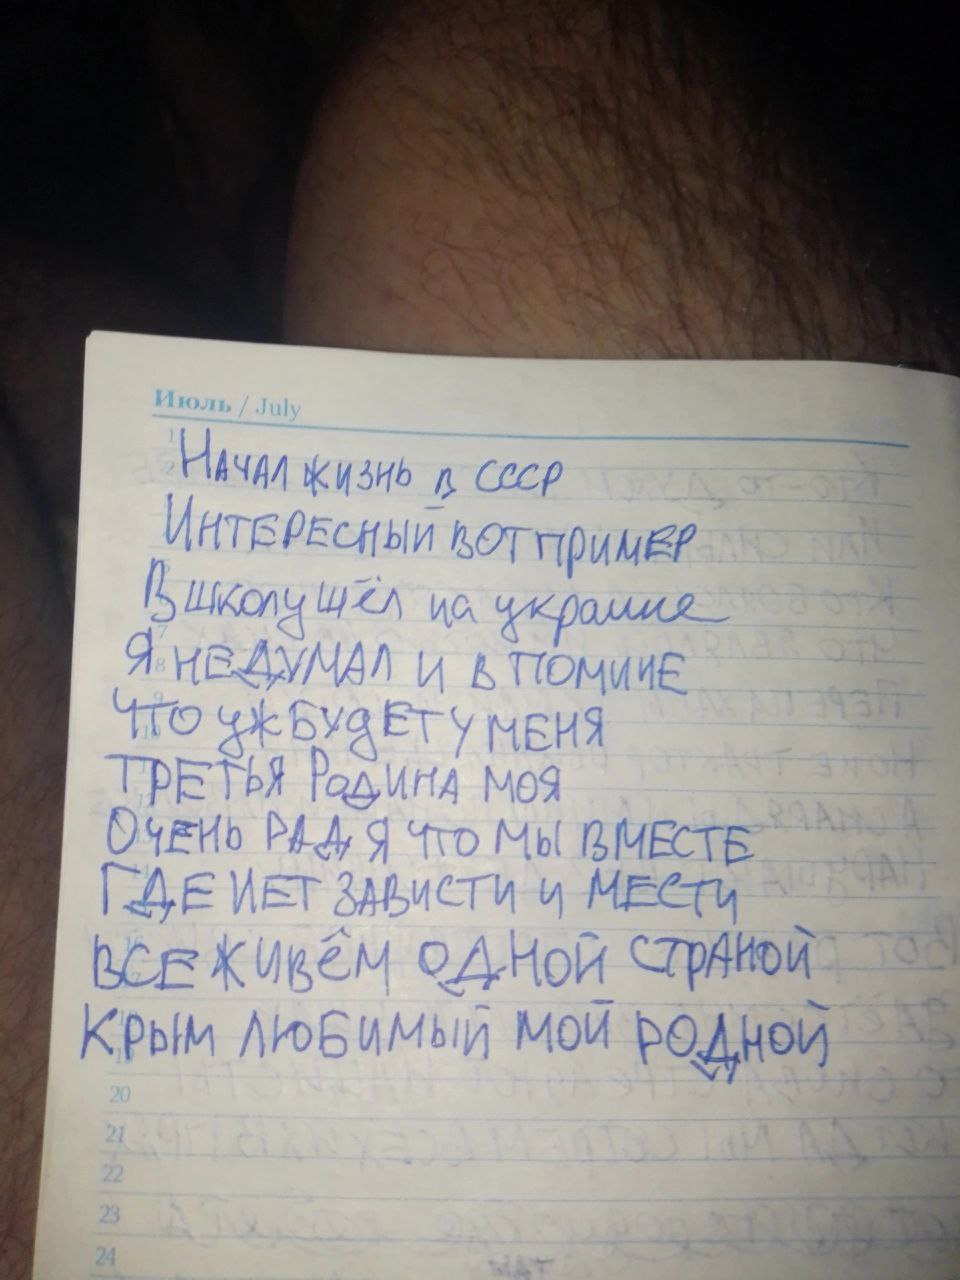 Июль / July
Начал жизнь в СССР
Интересный вот пример
В школу шёл на украине
Я не думал и в помине
Что уж будет у меня
Третья Родина моя
Очень рад я что мы вместе
Где нет зависти и мести
Все живём одной страной
Крым любимый мой родной
20
21
22
23
24